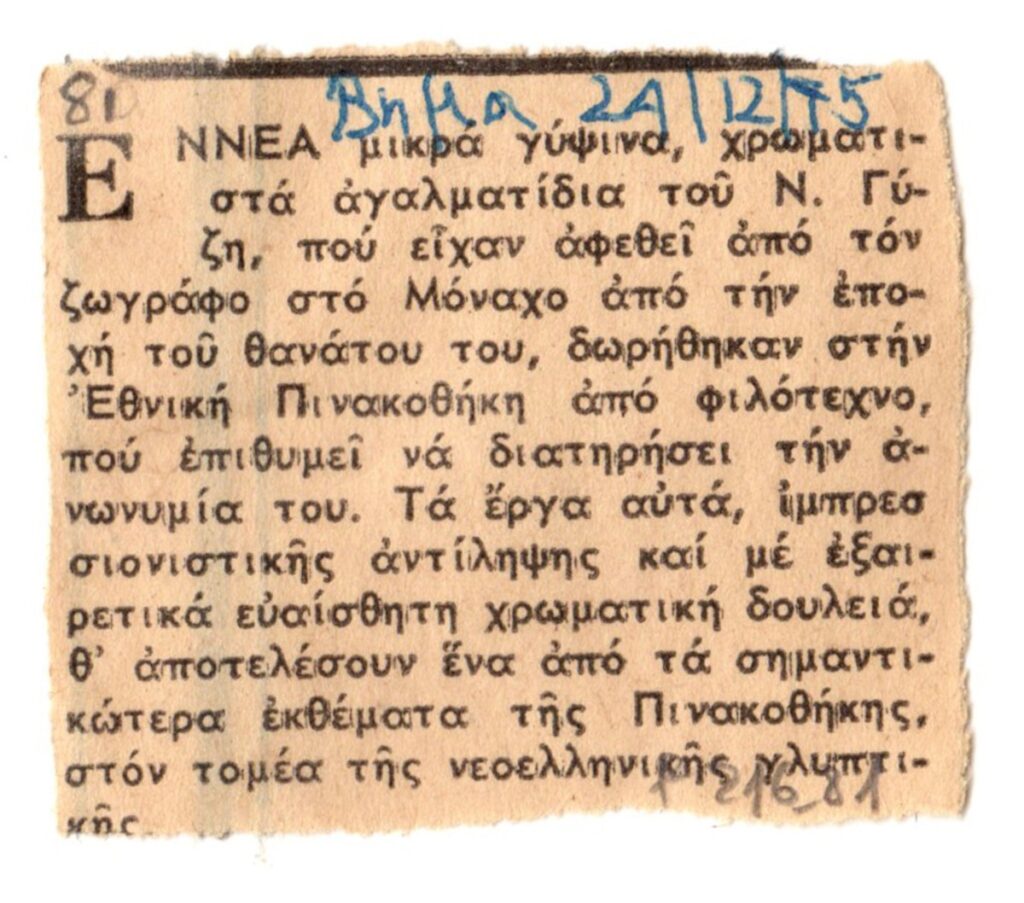 81
Βημα 24/12/75
ΕΝΝΕΑ μικρά γύψινα, χρωματι-
στά ἀγαλματίδια τοῦ Ν. Γύ-
ζη, πού εἶχαν ἀφεθεῖ ἀπό τόν
ζωγράφο στό Μόναχο ἀπό τήν ἐπο-
χή τοῦ θανάτου του, δωρήθηκαν στήν
Ἐθνική Πινακοθήκη ἀπό φιλότεχνο,
πού ἐπιθυμεῖ νά διατηρήσει τήν ἀ-
νωνυμία του. Τά ἔργα αὐτά, ἰμπρεσ
σιονιστικῆς ἀντίληψης καί μέ ἐξαι-
ρετικά εὐαίσθητη χρωματική δουλειά,
θ' ἀποτελέσουν ἕνα ἀπό τά σημαντι-
κώτερα ἐκθέματα τῆς Πινακοθήκης,
στόν τομέα τῆς νεοελληνικῆς γλυπτι-
κῆς.
216_81